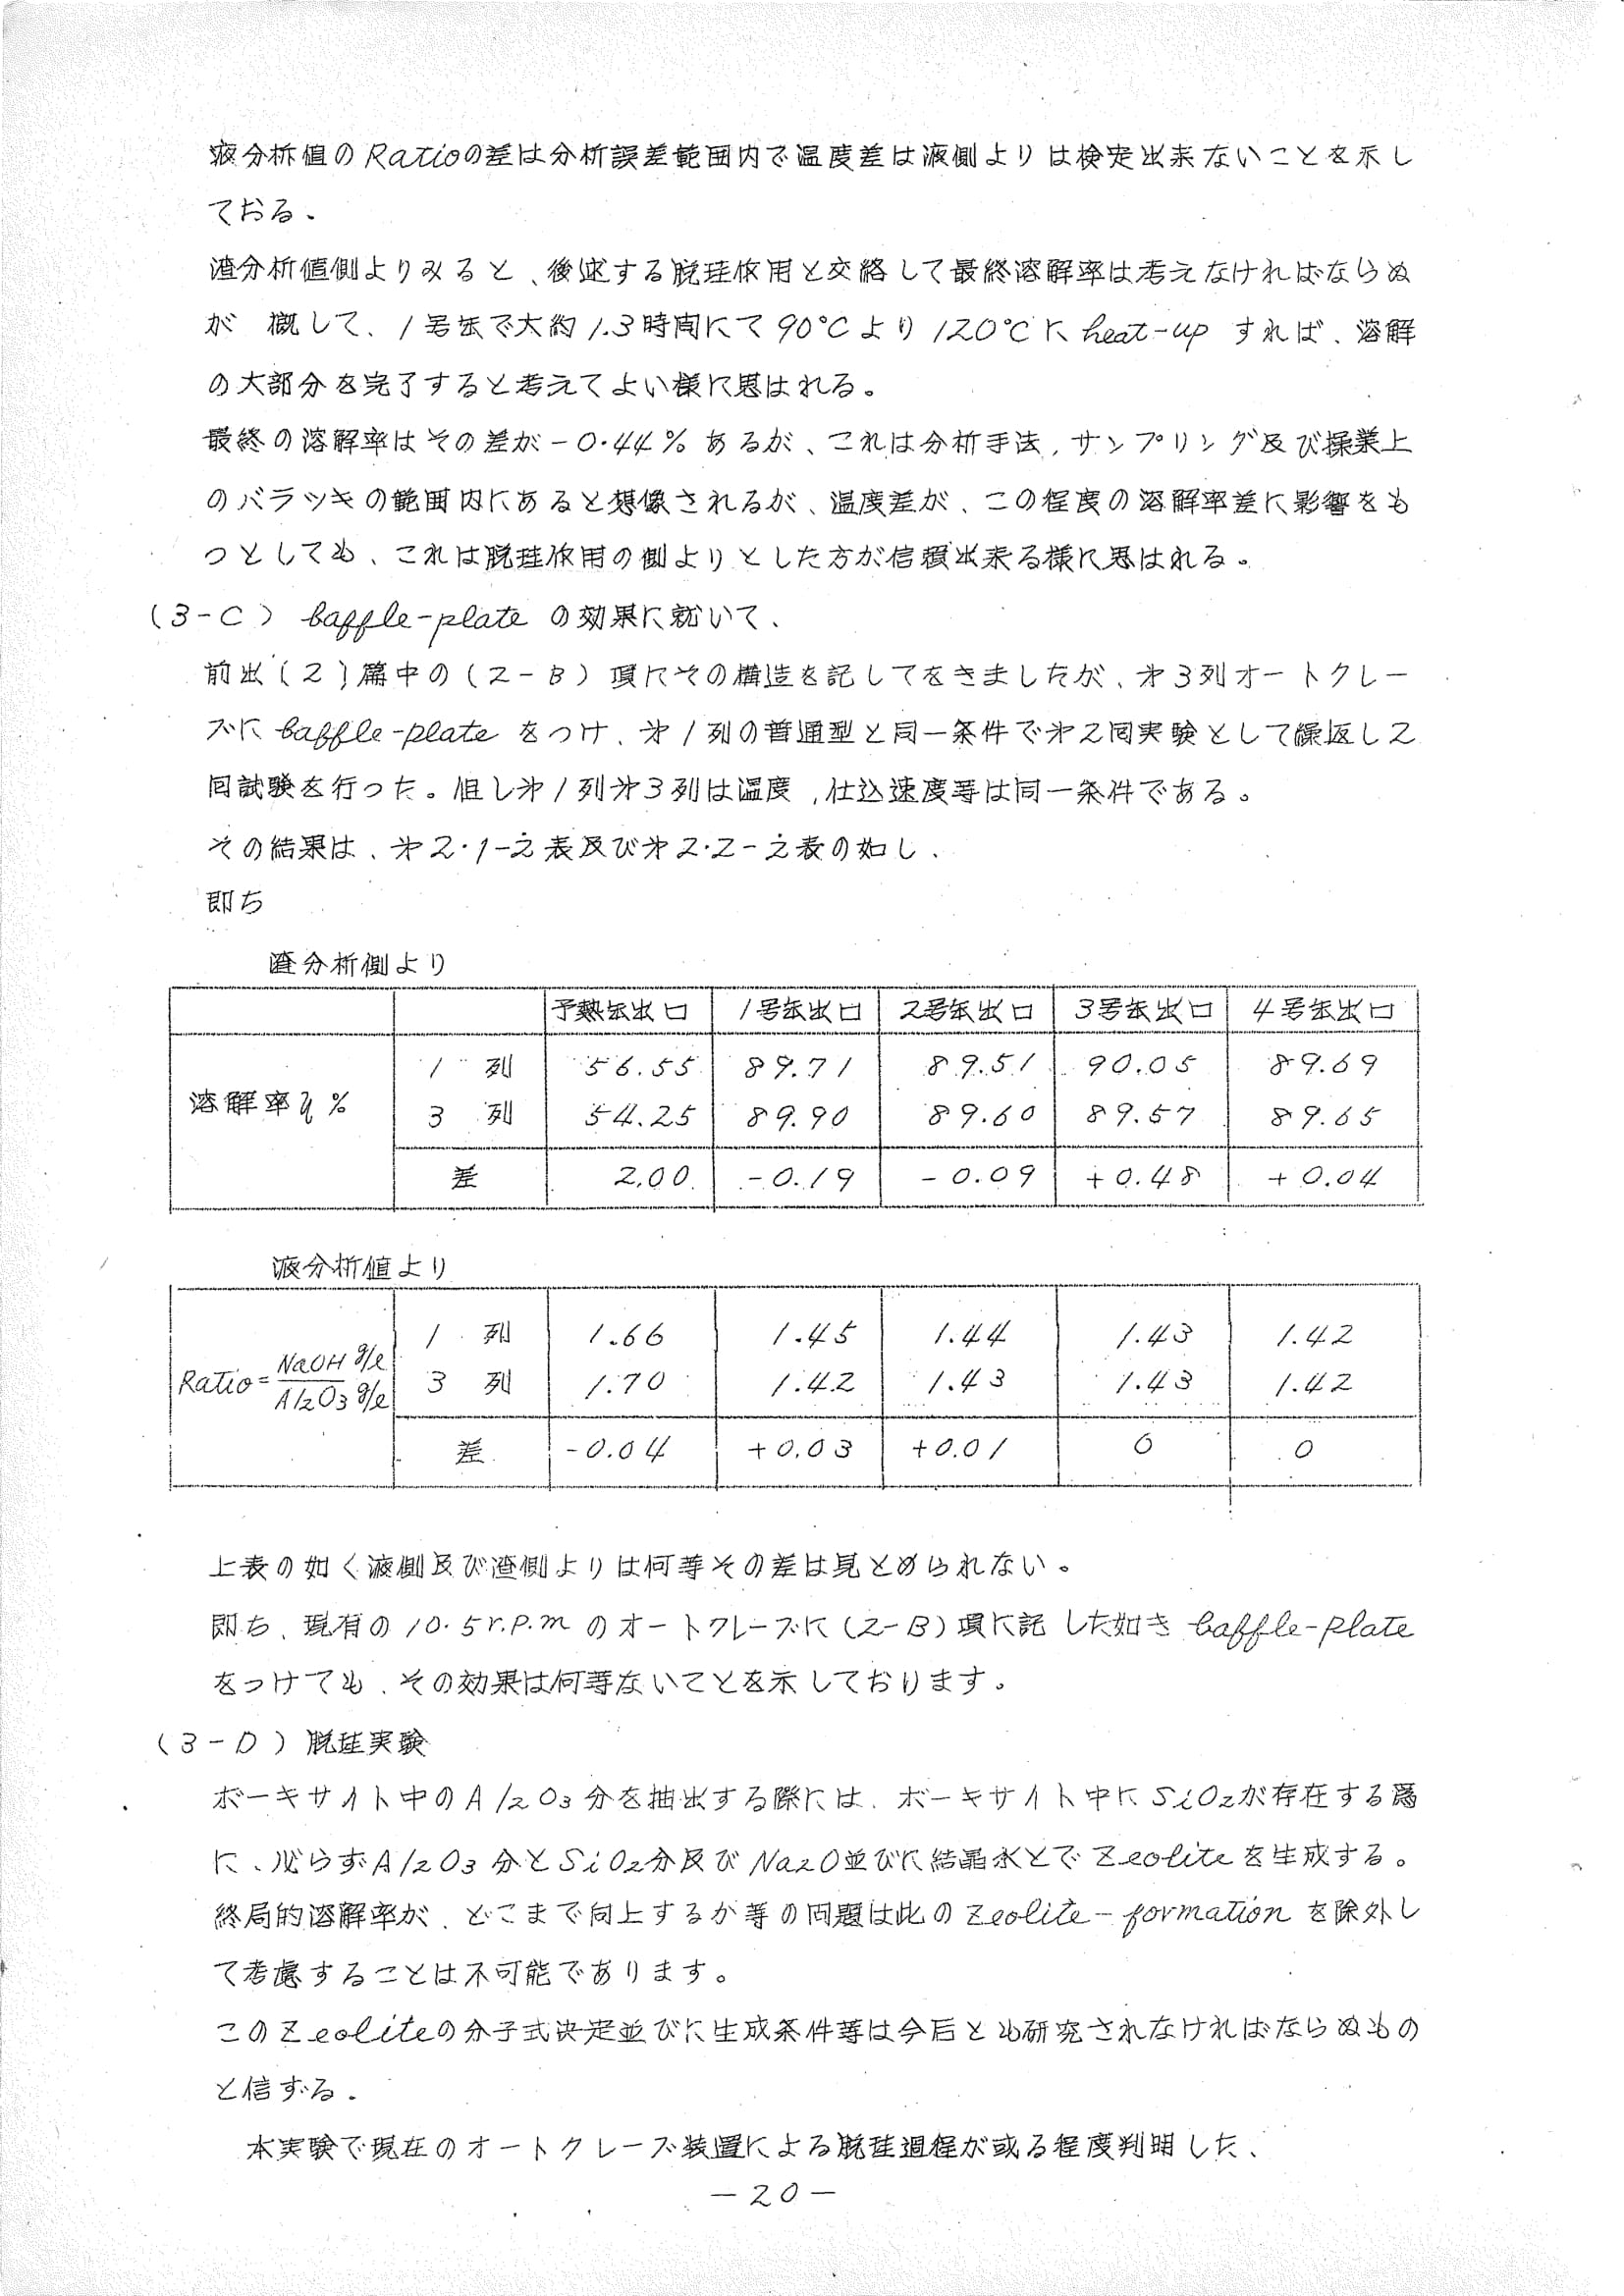 液分析値のRatioの差は分析誤差範囲内で温度差は液側よりは検定出来ないことを示し
ておる.
渣分析値側よりみると、後述する脱珪作用と交絡して最終溶解率は考えなければならぬ
が 概して、1号缶で大約1.3時間にて90°Cより120°Cにheat-up すれば、溶解
の大部分を完了すると考えてよい様に思はれる。
最終の溶解率はその差が-0.44%あるが、これは分析手法,サンプリング及び操業上
のバラツキの範囲内にあると想像されるが、温度差が、この程度の溶解率差に影響をも
つとしても、これは脱珪作用の側よりとした方が信頼出来る様に思はれる。
(3-C) baffle-plate の効果に就いて、
前出(2)篇中の(2-B)項にその構造を記してをきましたが、才3列オートクレー
ブに baffle-plate をつけ、才1列の普通型と同一条件で才2回実験として繰返し2
回試験を行った。但し才1列才3列は温度,仕込速度等は同一条件である。
その結果は、才2.1-2表及び才2.2-2表の如し.
即ち
渣分析側より
予熱缶出口 1号缶出口 2号缶出口 3号缶出口 4号缶出口
溶解率η%
1 列 56.55 89.71 89.51 90.05 89.69
3 列 54.25 89.90 89.60 89.57 89.65
差 2.00 -0.19 -0.09 +0.48 +0.04
液分析値より
Ratio=NaOH g/l/Al2O3 g/l
1 列 1.66 1.45 1.44 1.43 1.42
3 列 1.70 1.42 1.43 1.43 1.42
差 -0.04 +0.03 +0.01 0 0
上表の如く液側及び渣側よりは何等その差は見とめられない。
即ち、現有の10.5r.p.mのオートクレーブに(2-B)項に記した如き baffle-plate
をつけても、その効果は何等ないことを示しております。
(3-D) 脱珪実験
ボーキサイト中のAl2O3分を抽出する際には、ボーキサイト中にSiO2が存在する為
に、必らずAl2O3分とSiO2分及びNa2O並びに結晶水とでZeoliteを生成する。
終局的溶解率が、どこまで向上するか等の問題は此のZeolite-formationを除外し
て考慮することは不可能であります。
このZeoliteの分子式決定並びに生成条件等は今后とも研究されなければならぬもの
と信ずる.
本実験で現在のオートクレーブ装置による脱珪過程が或る程度判明した、
-20-